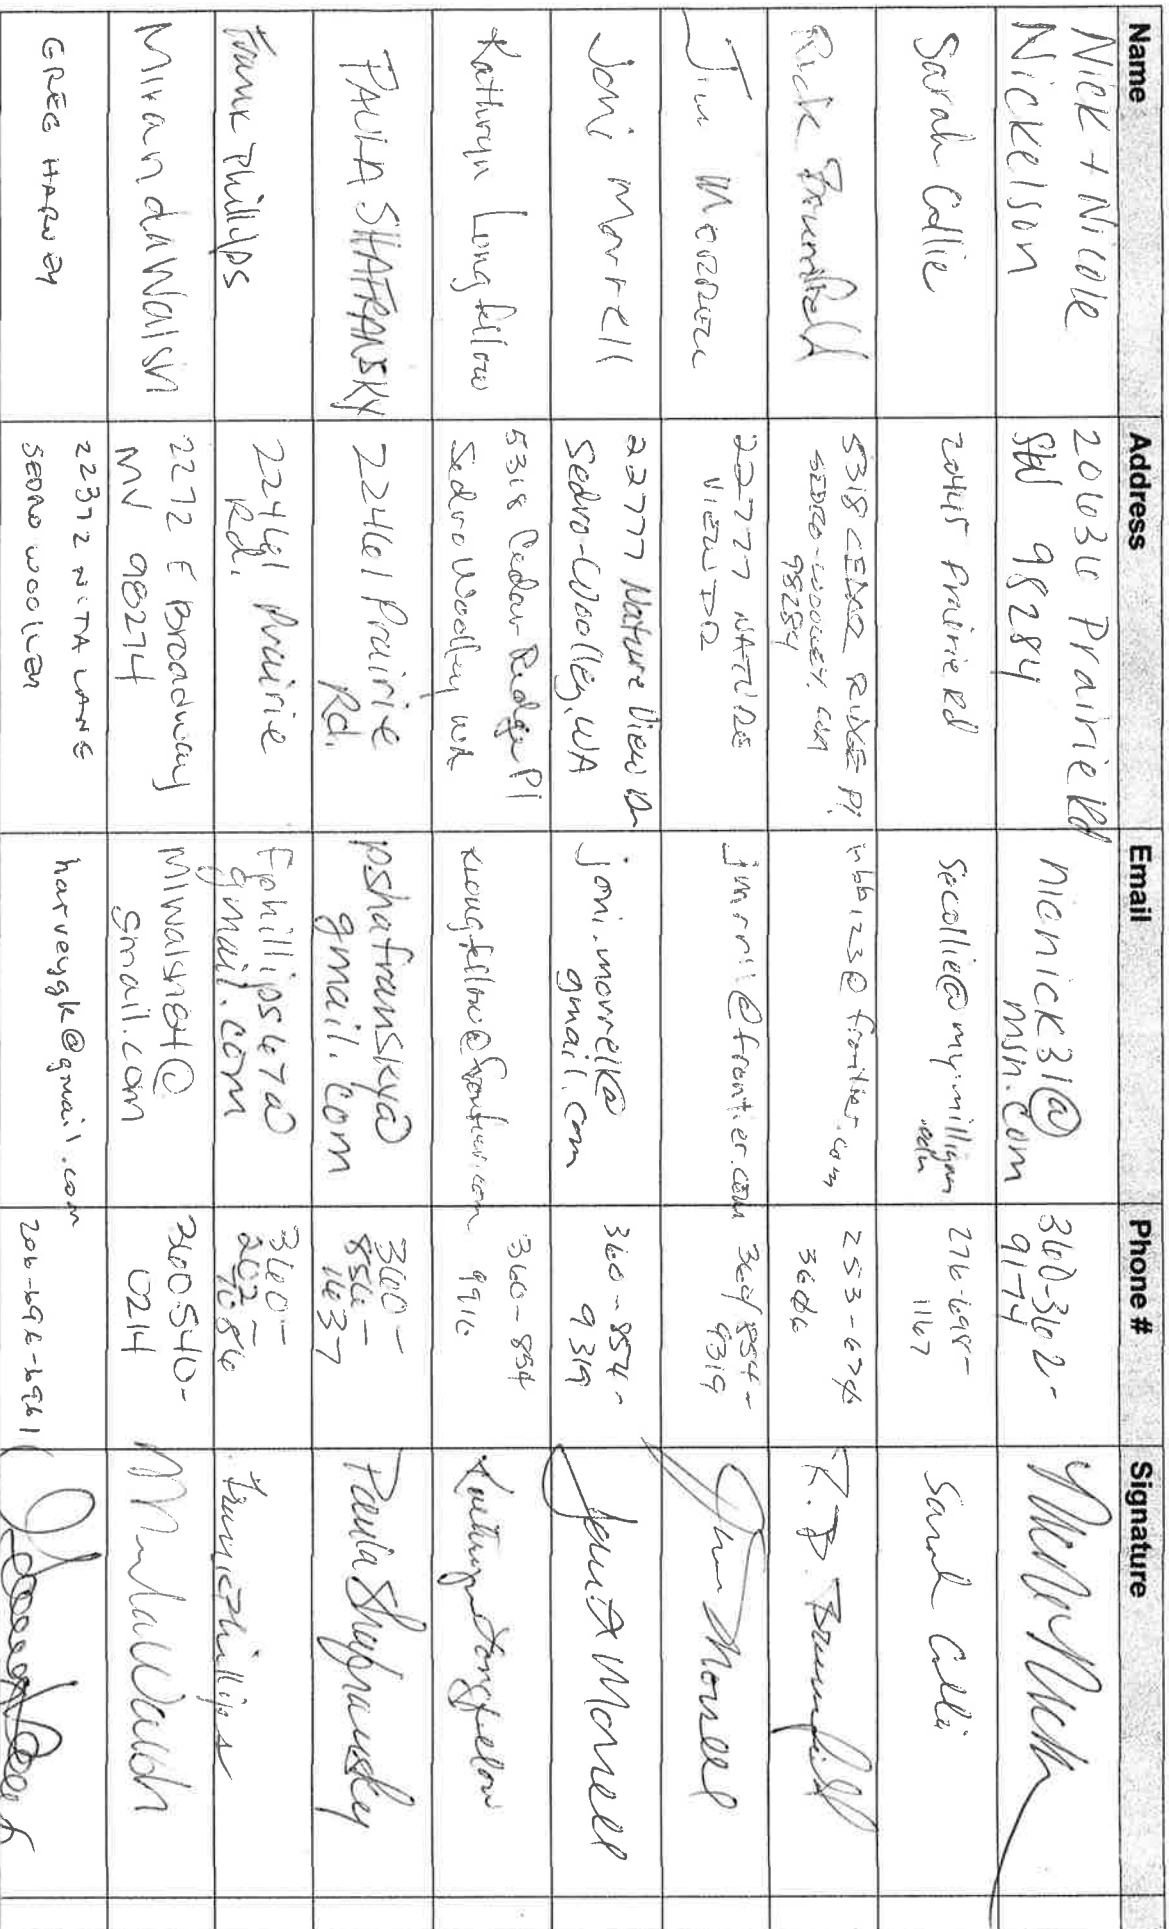 Name Address Email Phone # Signature
Nick + Nicole
Nickelson
Prairie Rd
SW 98284
nicnick31@
msn.com
360-302-
9174
Sarah Collie
Prairie Rd
secollie@my.milligan
.edu
276-698-
1167
Sarah Collie
Rick
5318 CEDAR RIDGE Pl
SEDRO-WOOLLEY, WA
98284
@frontier.com
253-
R. D.
Jim
22777 NATURE
VIEW DR
@frontier.com
360/854-
9319
Jim Morrell
Joni Morrell
22777 Nature View Dr
Sedro-Woolley, WA
joni.morrell@
gmail.com
360-854-
9319
Morrell
Kathryn Longfellow
5318 Cedar Ridge Pl
Sedro Woolley WA
klongfellow@frontier.com
360-854
9916
Kathryn Longfellow
PAULA SHAFRANSKY
22461 Prairie
Rd.
pshafransky@
gmail.com
360-
856-
1637
Paula Shafransky
Frank Phillips
22461 Prairie
Rd.
Fphillips67@
gmail.com
360-
202-
Frank Phillips
Miranda Walsh
2272 E Broadway
MV 98274
miwalsh84@
gmail.com
360 540-
0214
Walsh
GREG HARVEY
22372 NITA LANE
SEDRO WOOLLEY
harveygk@gmail.com
206-696-6961